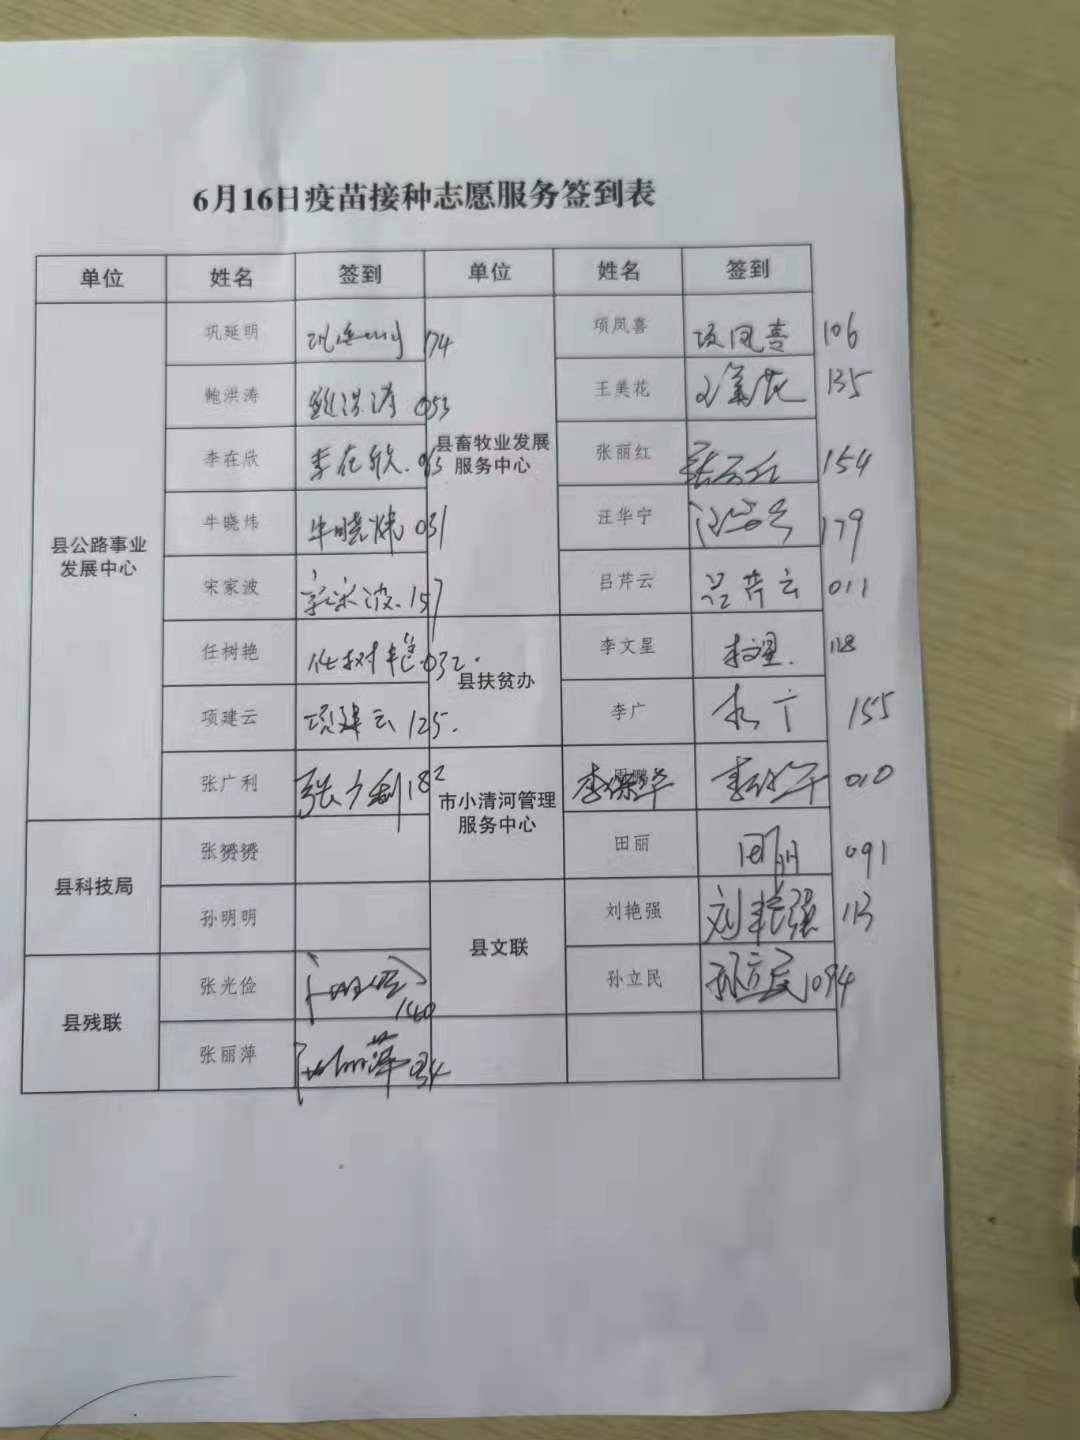 6月16日疫苗接种志愿服务签到表
单位 姓名 签到 单位 姓名 签到
县公路事业发展中心
巩延明 巩延明 174
鲍洪涛 鲍洪涛 053
李在欣 李在欣. 063
牛晓炜 牛晓炜 031
宋家波 宋家波. 157
任树艳 任树艳. 032.
项建云 项建云 125.
张广利 张广利 182
县科技局
张赟赟
孙明明
县残联
张光俭 160
张丽萍 张丽萍 034
县畜牧业发展服务中心
项凤喜 项凤喜 106
王美花 王美花 135
张丽红 张丽红 154
汪华宁 汪华宁 179
吕芹云 吕芹云 011
县扶贫办
李文星 李文星. 128
李广 李广 155
市小清河管理服务中心
李保华 李保华 010
田丽 田丽 091
县文联
刘艳强 刘艳强 113
孙立民 孙立民 1094